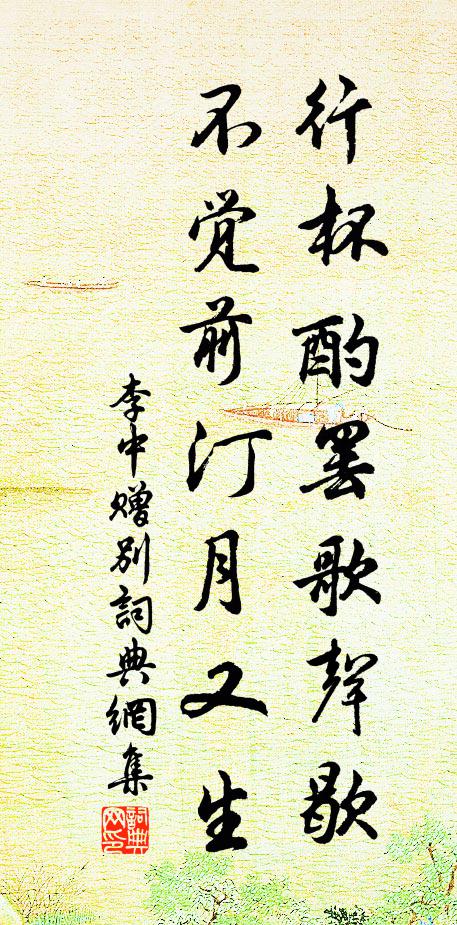 行杯酌罢歌聲歇
不觉前汀月又生
李中赠别詞典網集
詞典網印